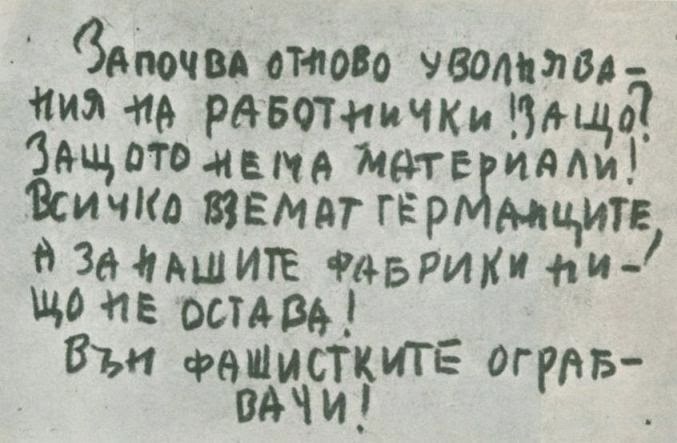 Започва отново уволнява-
ния на работнички! Защо?
Защото нема материали!
Всичко вземат германците,
а за нашите фабрики ни-
що не остава!
Вън фашистките ограб-
вачи!